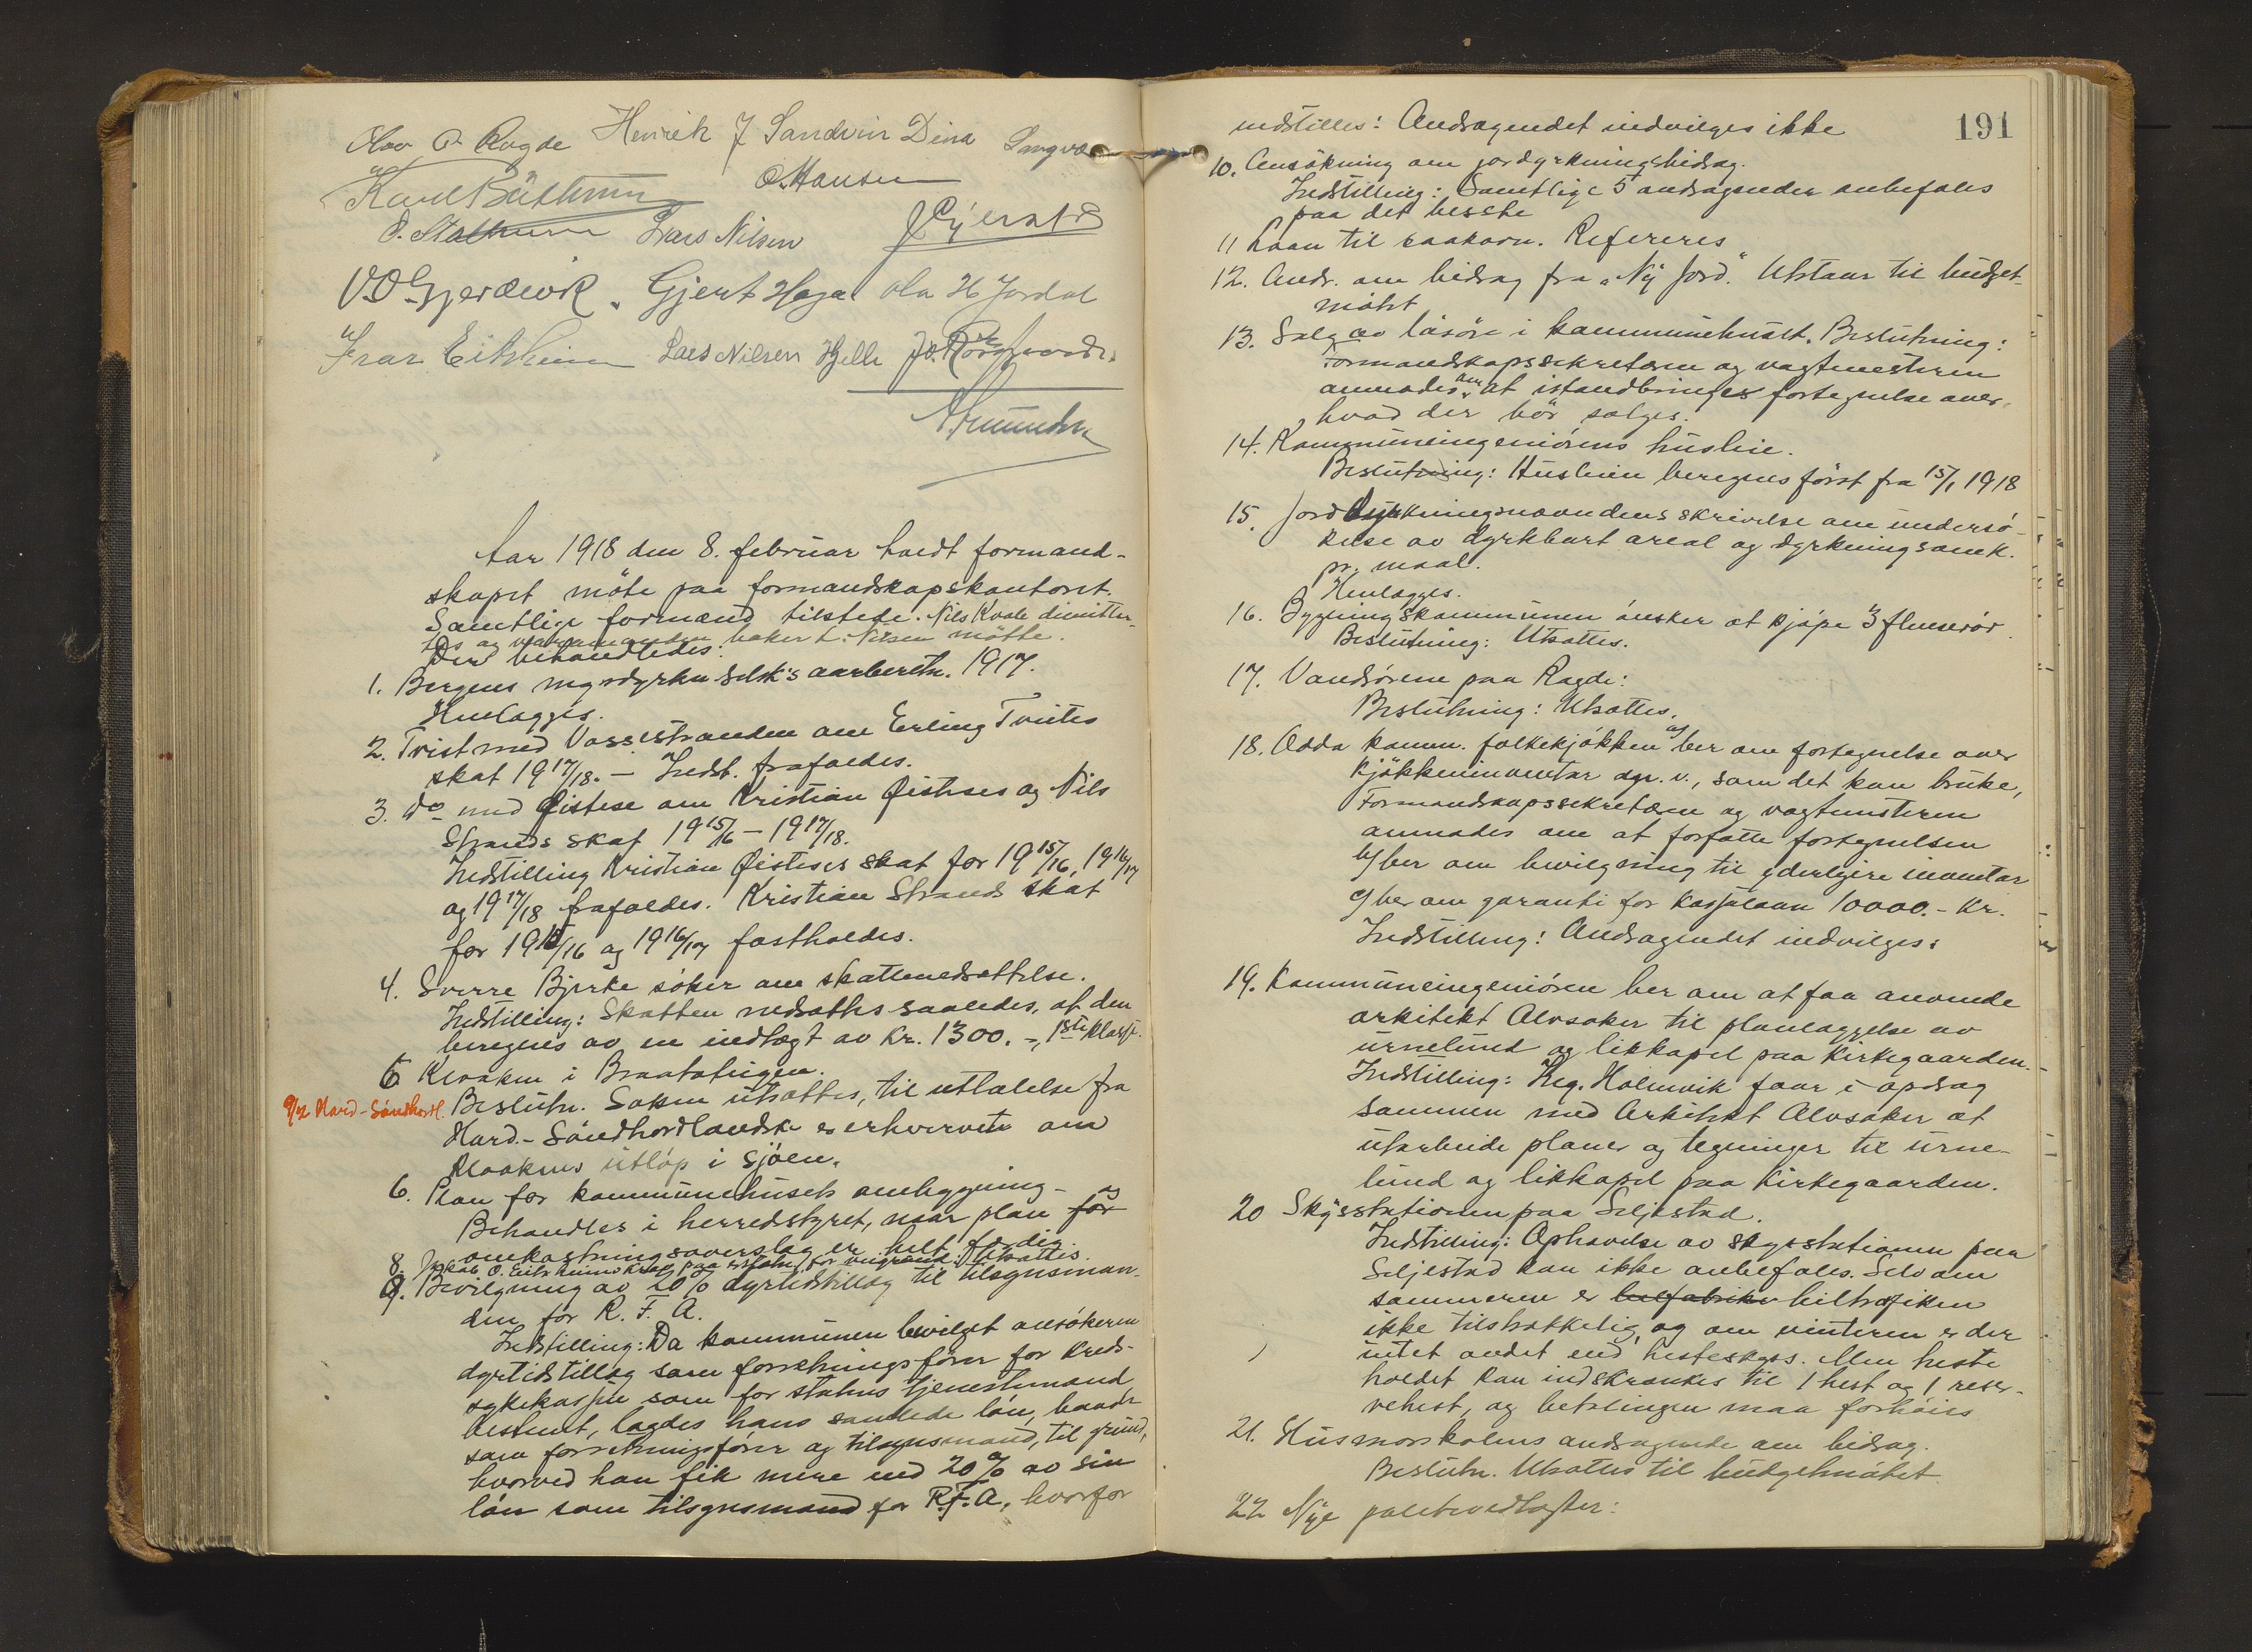 Olav O. Ragde Henrik J Sandvin Dina Langva
Karl Büthun O. Hansen
O. Stalheim Lars Nilsen J. Bjerstø
V. O. Gjerdevik. Gjert Haga Ola H Jordal
Ivar Eitrheim Lars Nilsen Hjelle
Aar 1918 den 8. februar holdt formand-
skapet möte paa formandskapskontoret.
Samtlige formænd tilstede. Nils Kvale dimitter-
tes og varamanden baker L. Nilsen mötte.
Der behandledes:
1. Bergens myrdyrkn selsk's aarberetn. 1917.
Henlægges.
2. Tvist med Vossestranden om Erling Tvites
skat 1917/18. – Indst. frafaldes.
3. do med Øistese om Kristian Øisteses og Nils
Strands skat 1915/16 – 1917/18.
Indstilling Kristian Øisteses skat for 1915/16, 1916/17
og 1917/18 frafaldes. Kristian Strands skat
for 1915/16 og 1916/17 fastholdes.
4. Sverre Bjerke söker om skattenedsættelse.
Indstilling: Skatten nedsættes saaledes, at den
beregnes av en indtægt av Kr. 1300.-, 1ste klasse.
5. Kloaken i Braatatugen.
9/2 Hard-Söndhordl. Beslutn. Saken utsættes, til uttalelse fra
Hard.-Söndhordlandske erhververe om
Kloakens utlöp i sjöen.
6. Plan for kommunehusets ombygning –
Behandles i herredstyret, naar plan for og
omkostningsoverslag er helt færdig.
8. Jakob O. Eitrheims krav paa erstatn. for veigrund. Utsættes.
9. Bevilgning av 20% dyrtidstillæg til tilsynsman-
den for R. F. A.
Indstilling: Da kommunen bevilget ansökeren
dyrtidstillæg som forretningsförer for kreds-
sykekassen som for statens tjenestemænd
bestemt, lagdes hans samlede lön, baade
som forretningsförer og tilsynsmand, til grund,
hvorved han fik mere end 20% av sin
lön som tilsynsmand for R.F.A, hvorfor
191
indstilles: Andragendet indvilges ikke
10. Ansökning om jordyrkningsbidrag.
Indstilling: Samtlige 5 andragender anbefales
paa det bedste
11 Laan til saakorn. Refereres
12. Andr. om bidrag fra "Ny Jord." Utstaar til budget-
mötet
13. Salg av lösöre i kommunehuset. Beslutning:
Formandskapssekretæren og vagtmesteren
anmodes om at istandbringe fortegnelse over,
hvad der bör sælges.
14. Kommuneingeniörens husleie.
Beslutning: Husleien beregnes först fra 15/1 1918
15. Jorddyrkningsnævndens skrivelse om undersö-
kelse av dyrkbart areal og dyrkningsomk.
pr. maal.
Henlægges.
16. Bygningskommunen önsker at kjöpe 3 flenserör.
Beslutning: Utsættes.
17. Vandsörene paa Ragde:
Beslutning: Utsættes.
18. Odda komm. folkekjökken a/ ber om fortegnelse over
kjökkeninventar ogs. v., som det kan bruke,
Formandskapssekretæren og vagtmesteren
anmodes om at forfatte fortegnelsen
b/ ber om bevilgning til yderligere inventar
c/ ber om garanti for kasselaan 10000.- Kr.
Indstilling: Andragendet indvilges.
19. Kommuneingeniören ber om at faa anvende
arkitekt Alvsaker til planlæggelse av
urnelund og likkapel paa kirkegaarden.-
Indstilling: Ing. Holmvik faar i opdrag
sammen med Arkitekt Alvsaker at
utarbeide planer og tegninger til urne-
lund og likkapel paa Kirkegaarden.
20 Skysstationen paa Seljestad.
Indstilling: Ophævelse av skysstationen paa
Seljestad kan ikke anbefales. Selv om
sommeren er biltrafiken
ikke tilstrækkelig, og om vinteren er der
intet andet end hesteskyss. Men heste
holdet kan indskrænkes til 1 hest og 1 reser-
vehest, og betalingen maa forhöies
21. Husmorskolens andragende om bidrag.
Beslutn. Utsættes til budgetmötet
22 Nye politivedtægter: